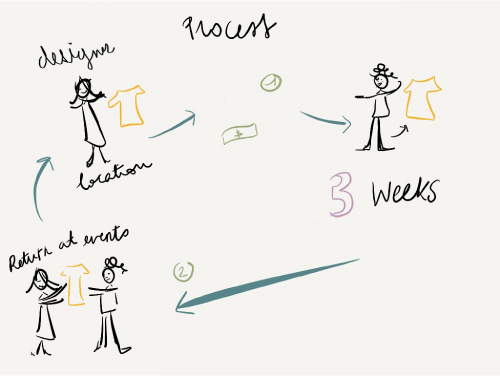 Process
designer
1
+
location
3 Weeks
Return at events
2